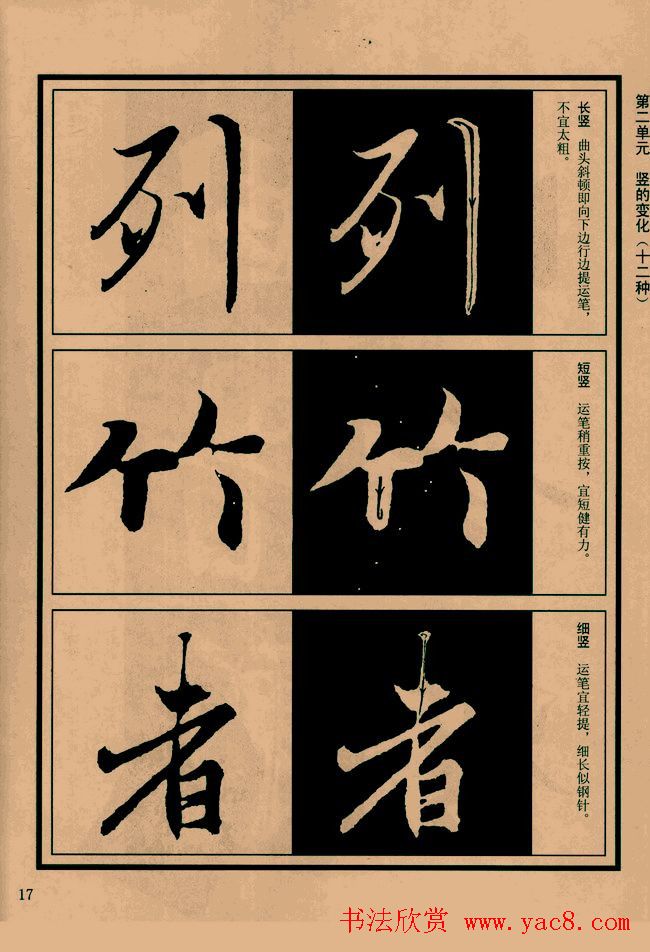 第二单元 竖的变化（十二种）
长竖 曲头斜顿即向下边行边提运笔，
不宜太粗。
列 列
短竖 运笔稍重按，宜短健有力。
竹 竹
细竖 运笔宜轻提，细长似钢针。
者 者
17
书法欣赏 www.yac8.com